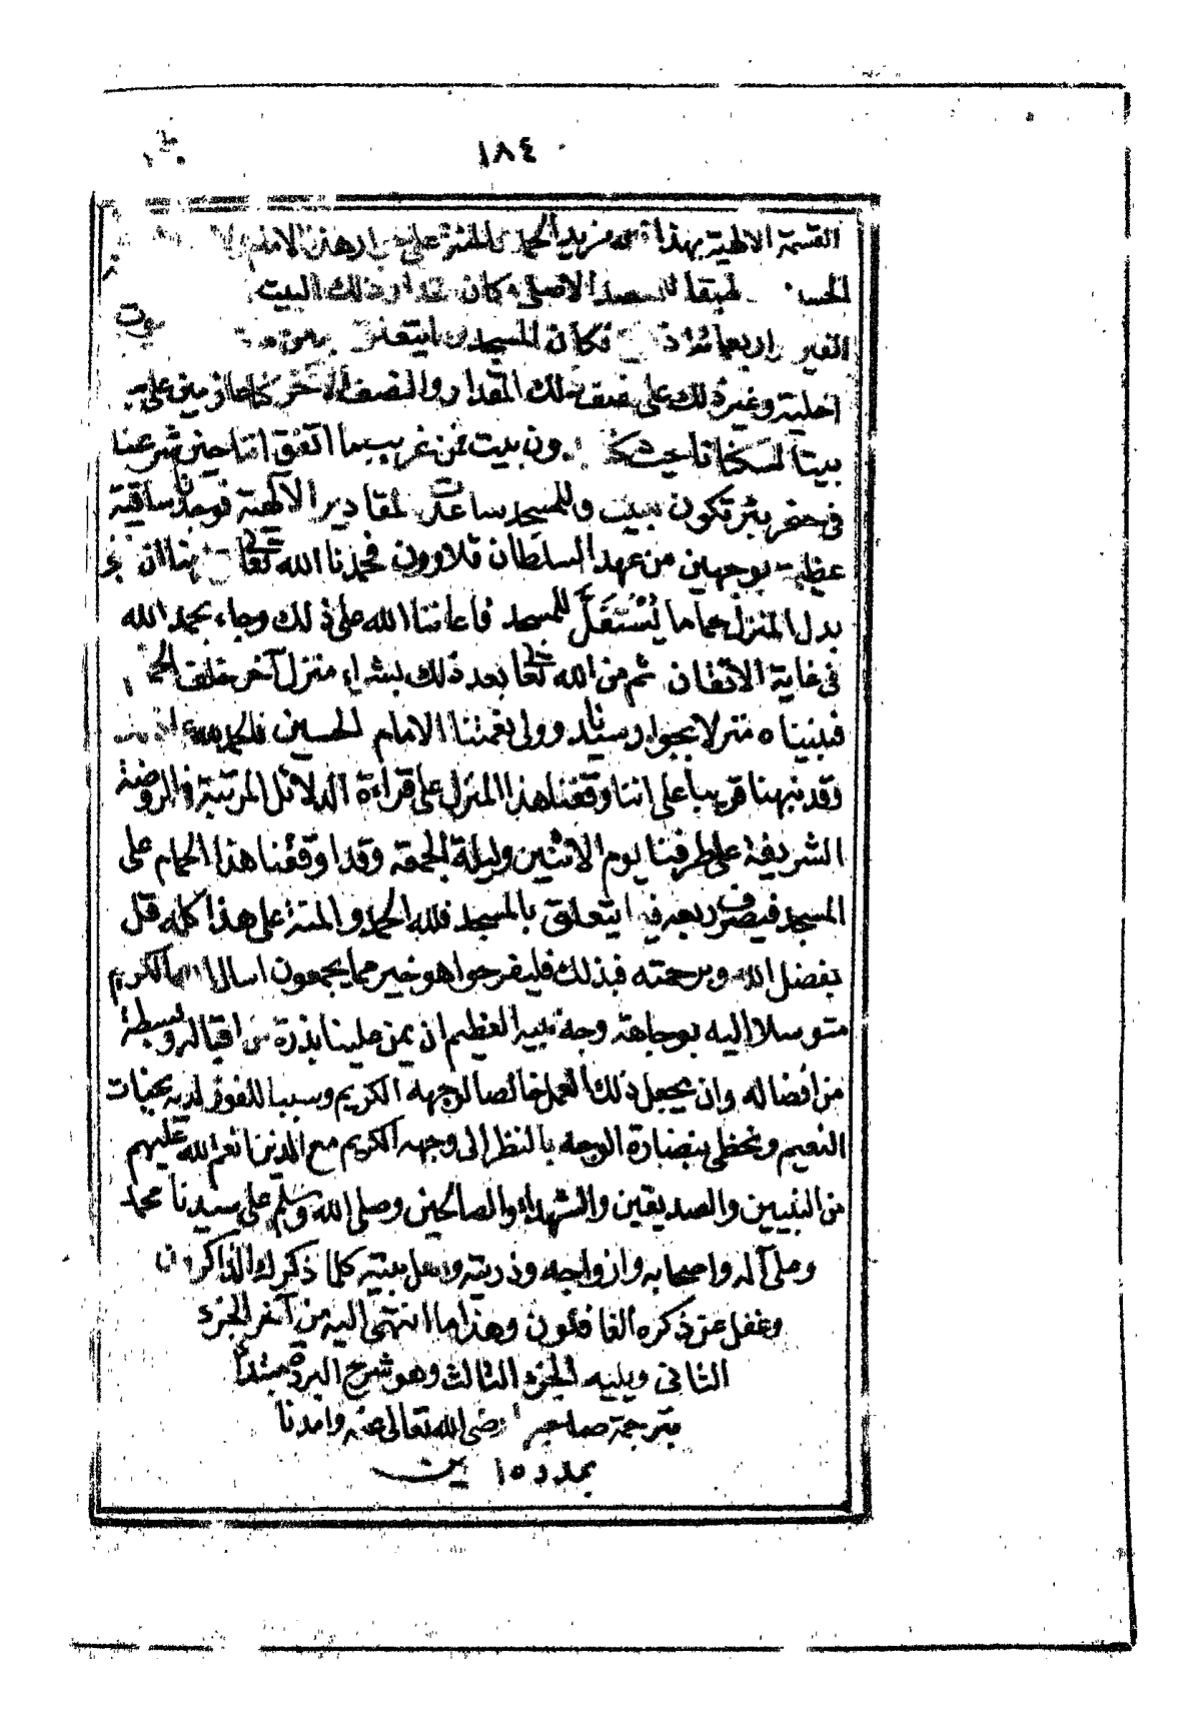 ١٨٤
القسمة الالهية بهذا فله مزيد الحمد والمنة على جوار هذا الامام
الحسين طبقا للمصد الاصلى وكان مقدار ذلك البيت
اربعمائة فكأن المسجد وما يتعلق به من بيوت
اخلية وغير ذلك على نصف ذلك المقدار والنصف الآخر كنا عازمين على
بيتا لسكنانا حيث بدون بيت فمن غريب ما اتفق اننا حين شرعنا
فى حفر بئر تكون للبيت وللمسجد ساعدت المقادير الالهية فوجدنا ساقية
عظيمة بوجهين من عهد السلطان قلاوون فحمدنا الله تعالى
بدل المنزل حماما يستغل للمسجد فاعاننا الله على ذلك وجاء بحمد الله
فى غاية الاتقان ثم من الله تعالى بعد ذلك بشراء منزل آخر خلف
فبنيناه منزلا بجوار سيدنا وولى نعمتنا الامام الحسين فلله الحمد
وقد نبهنا قريبا على اننا وقفنا هذا المنزل على قراءة الدلائل المرتبة فى الروضة
الشريفة على طرفنا يوم الاثنين وليلة الجمعة وقد اوقفنا هذا الحمام على
المسجد فيصرف ريعه فيما يتعلق بالمسجد فلله الحمد والمنة على هذا كله قل
بفضل الله وبرحمته فبذلك فليفرحوا هو خير مما يجمعون اسال الله الكريم
متوسلا اليه بوجاهة وجه نبيه العظيم ان يمن علينا بذرة من اقباله وبسطة
من افضاله وان يجعل ذلك العمل خالصا لوجهه الكريم وسببا للفوز لديه بجنات
النعيم ونحظى بنضارة الوجه بالنظر الى وجهه الكريم مع الذين انعم الله عليهم
من النبيين والصديقين والشهداء والصالحين وصلى الله وسلم على سيدنا محمد
وعلى آله واصحابه وازواجه وذريته واهل بيته كلما ذكرك الذاكرون
وغفل عن ذكره الغافلون وهذا ما انتهى اليه من آخر الجزء
الثانى ويليه الجزء الثالث وهو شرح البردة مبتدئا
بترجمة صاحبها رضى الله تعالى عنه وامدنا
بمدده